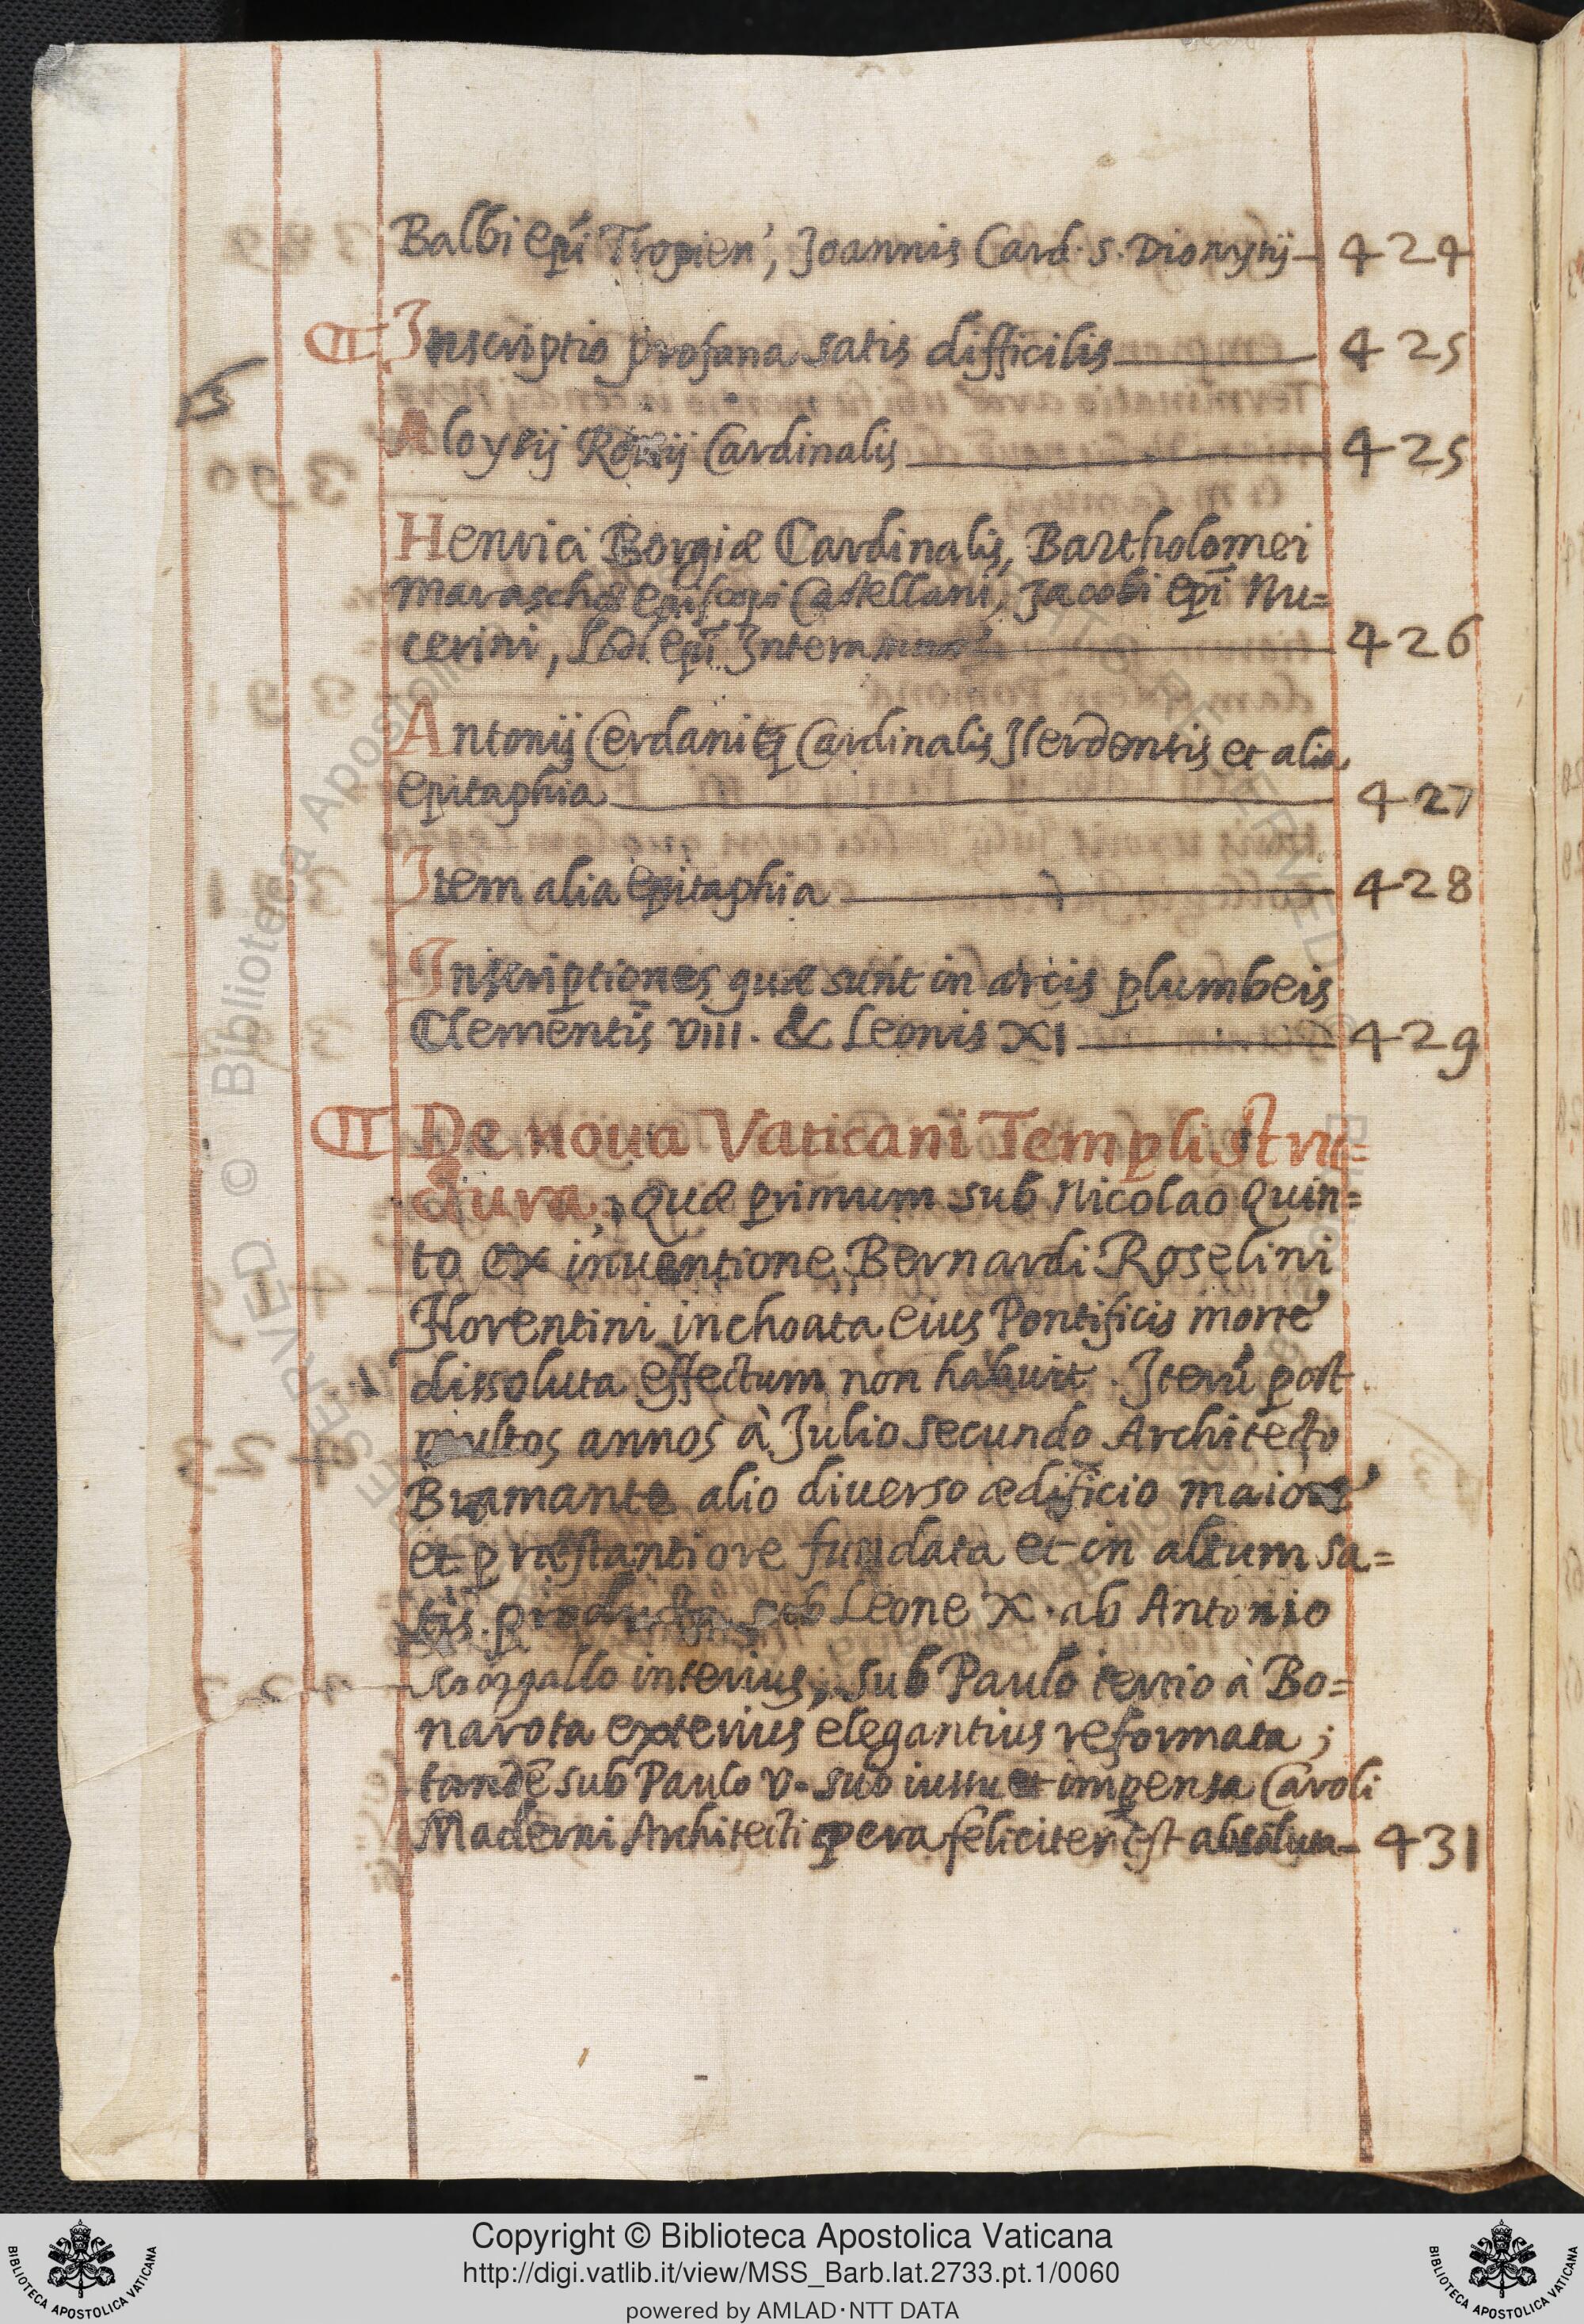 Balbi epĩ Tropien', Joannis Card. S. Dionysij — 424
Inscriptio profana satis difficilis — 425
Aloysij Rossij Cardinalis — 425
Henrici Borgiæ Cardinalis, Bartholomei
Maraschæ episcopi Castellani, Jacobi epĩ Nu=
cerini, epĩ — 426
Antonij Cerdani Cardinalis Ilerdentis et alia
epitaphia — 427
Item alia epitaphia — 428
Inscriptiones quæ sunt in arcis plumbeis
Clementis VIII. & Leonis XI — 429
De noua Vaticani Templi stru=
ctura, quæ primum sub Nicolao Quin=
to ex inuentione Bernardi Roselini
Florentini inchoata eius Pontificis morte
dissoluta effectum non habuit. Iterũ post
multos annos à Julio secundo Architecto
Bramante alio diuerso ædificio maiore
et præstantiore fundata et in altum sa=
tis producta sub Leone X. ab Antonio
Sangallo interius, sub Paulo tertio à Bo=
narota exterius elegantius reformata;
tandẽ sub Paulo V. suo iussu et impensa Caroli
Maderni Architecti opera feliciter est absoluta — 431
Copyright © Biblioteca Apostolica Vaticana
http://digi.vatlib.it/view/MSS_Barb.lat.2733.pt.1/0060
powered by AMLAD·NTT DATA
BIBLIOTECA APOSTOLICA VATICANA
BIBLIOTECA APOSTOLICA VATICANA